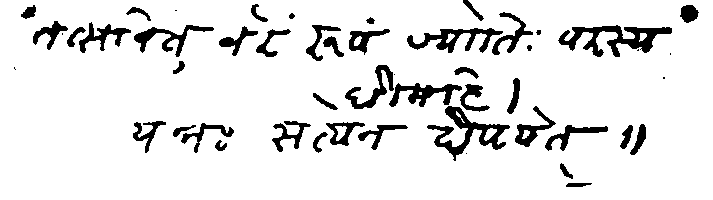 तत्सवितुर्वरं रूपं ज्योतिः परस्य
धीमहि ।
यन्नः सत्येन दीपयेत् ॥